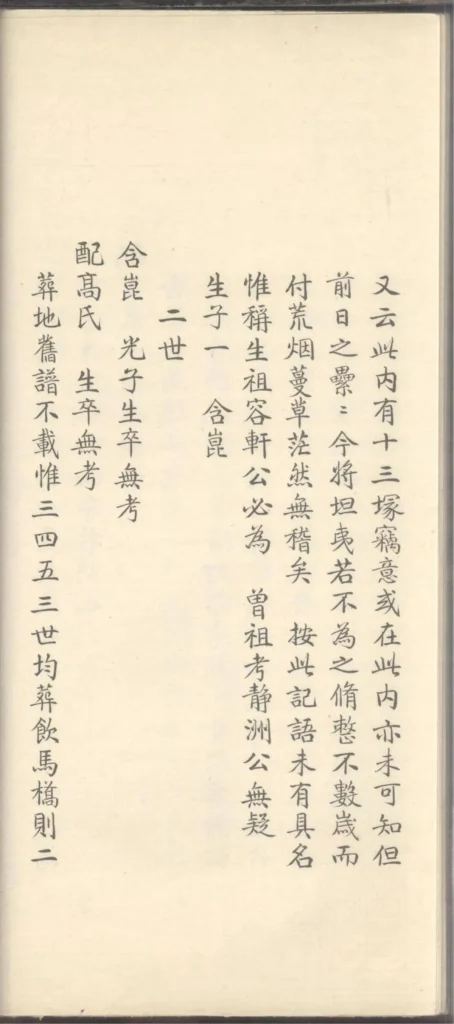 又云此内有十三塚竊意或在此内亦未可知但
前日之纍〻今將坦夷若不為之脩整不數歲而
付荒烟蔓草茫然無稽矣　按此記語未有具名
惟稱生祖容軒公必為　曾祖考静洲公無疑
生子一　含崑
二世
含崑　光子生卒無考
配髙氏　生卒無考
葬地舊譜不載惟三四五三世均葬飲馬橋則二